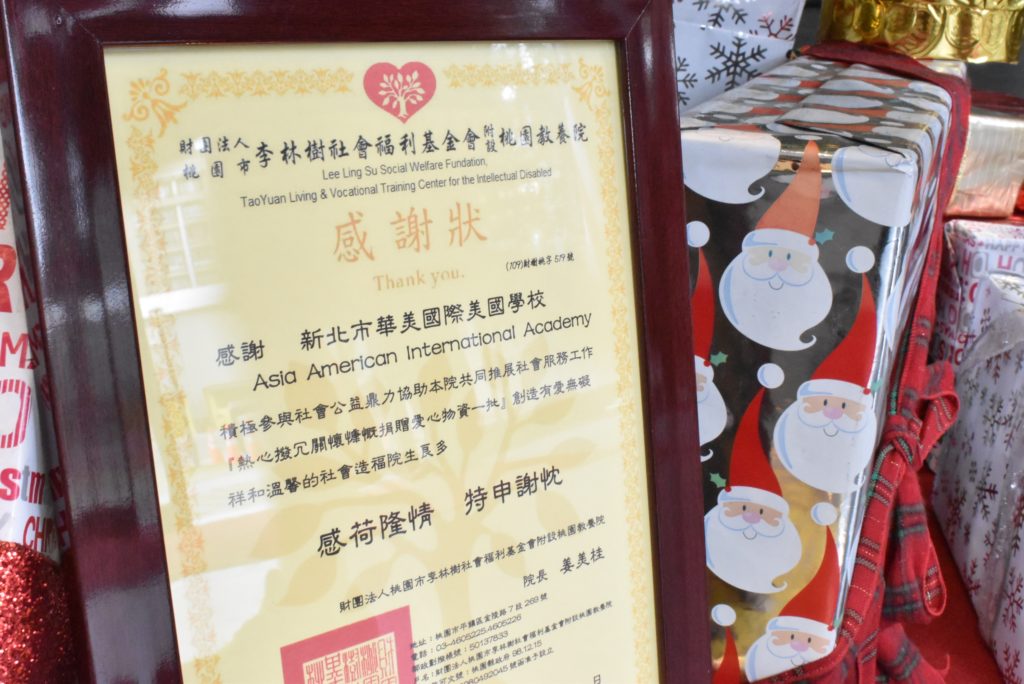 財團法人 李林樹社會福利基金會 附設 桃園教養院
桃園市
Lee Ling Su Social Welfare Fundation,
TaoYuan Living & Vocational Training Center for the Intellectual Disabled
感謝狀
Thank you.
(109)財樹桃字519號
感謝 新北市華美國際美國學校
Asia American International Academy
積極參與社會公益鼎力協助本院共同推展社會服務工作
『熱心撥冗關懷慷慨捐贈愛心物資一批』創造有愛無礙
祥和溫馨的社會造福院生良多
感荷隆情 特申謝忱
財團法人桃園市李林樹社會福利基金會附設桃園教養院
院長 姜美桂
地址：桃園市平鎮區金陵路7段269號
電話：03-4605225,4605226
郵政劃撥帳號：50137833
戶名：財團法人桃園市李林樹社會福利基金會附設桃園教養院
桃園縣政府98.12.15
號函准予設立
日